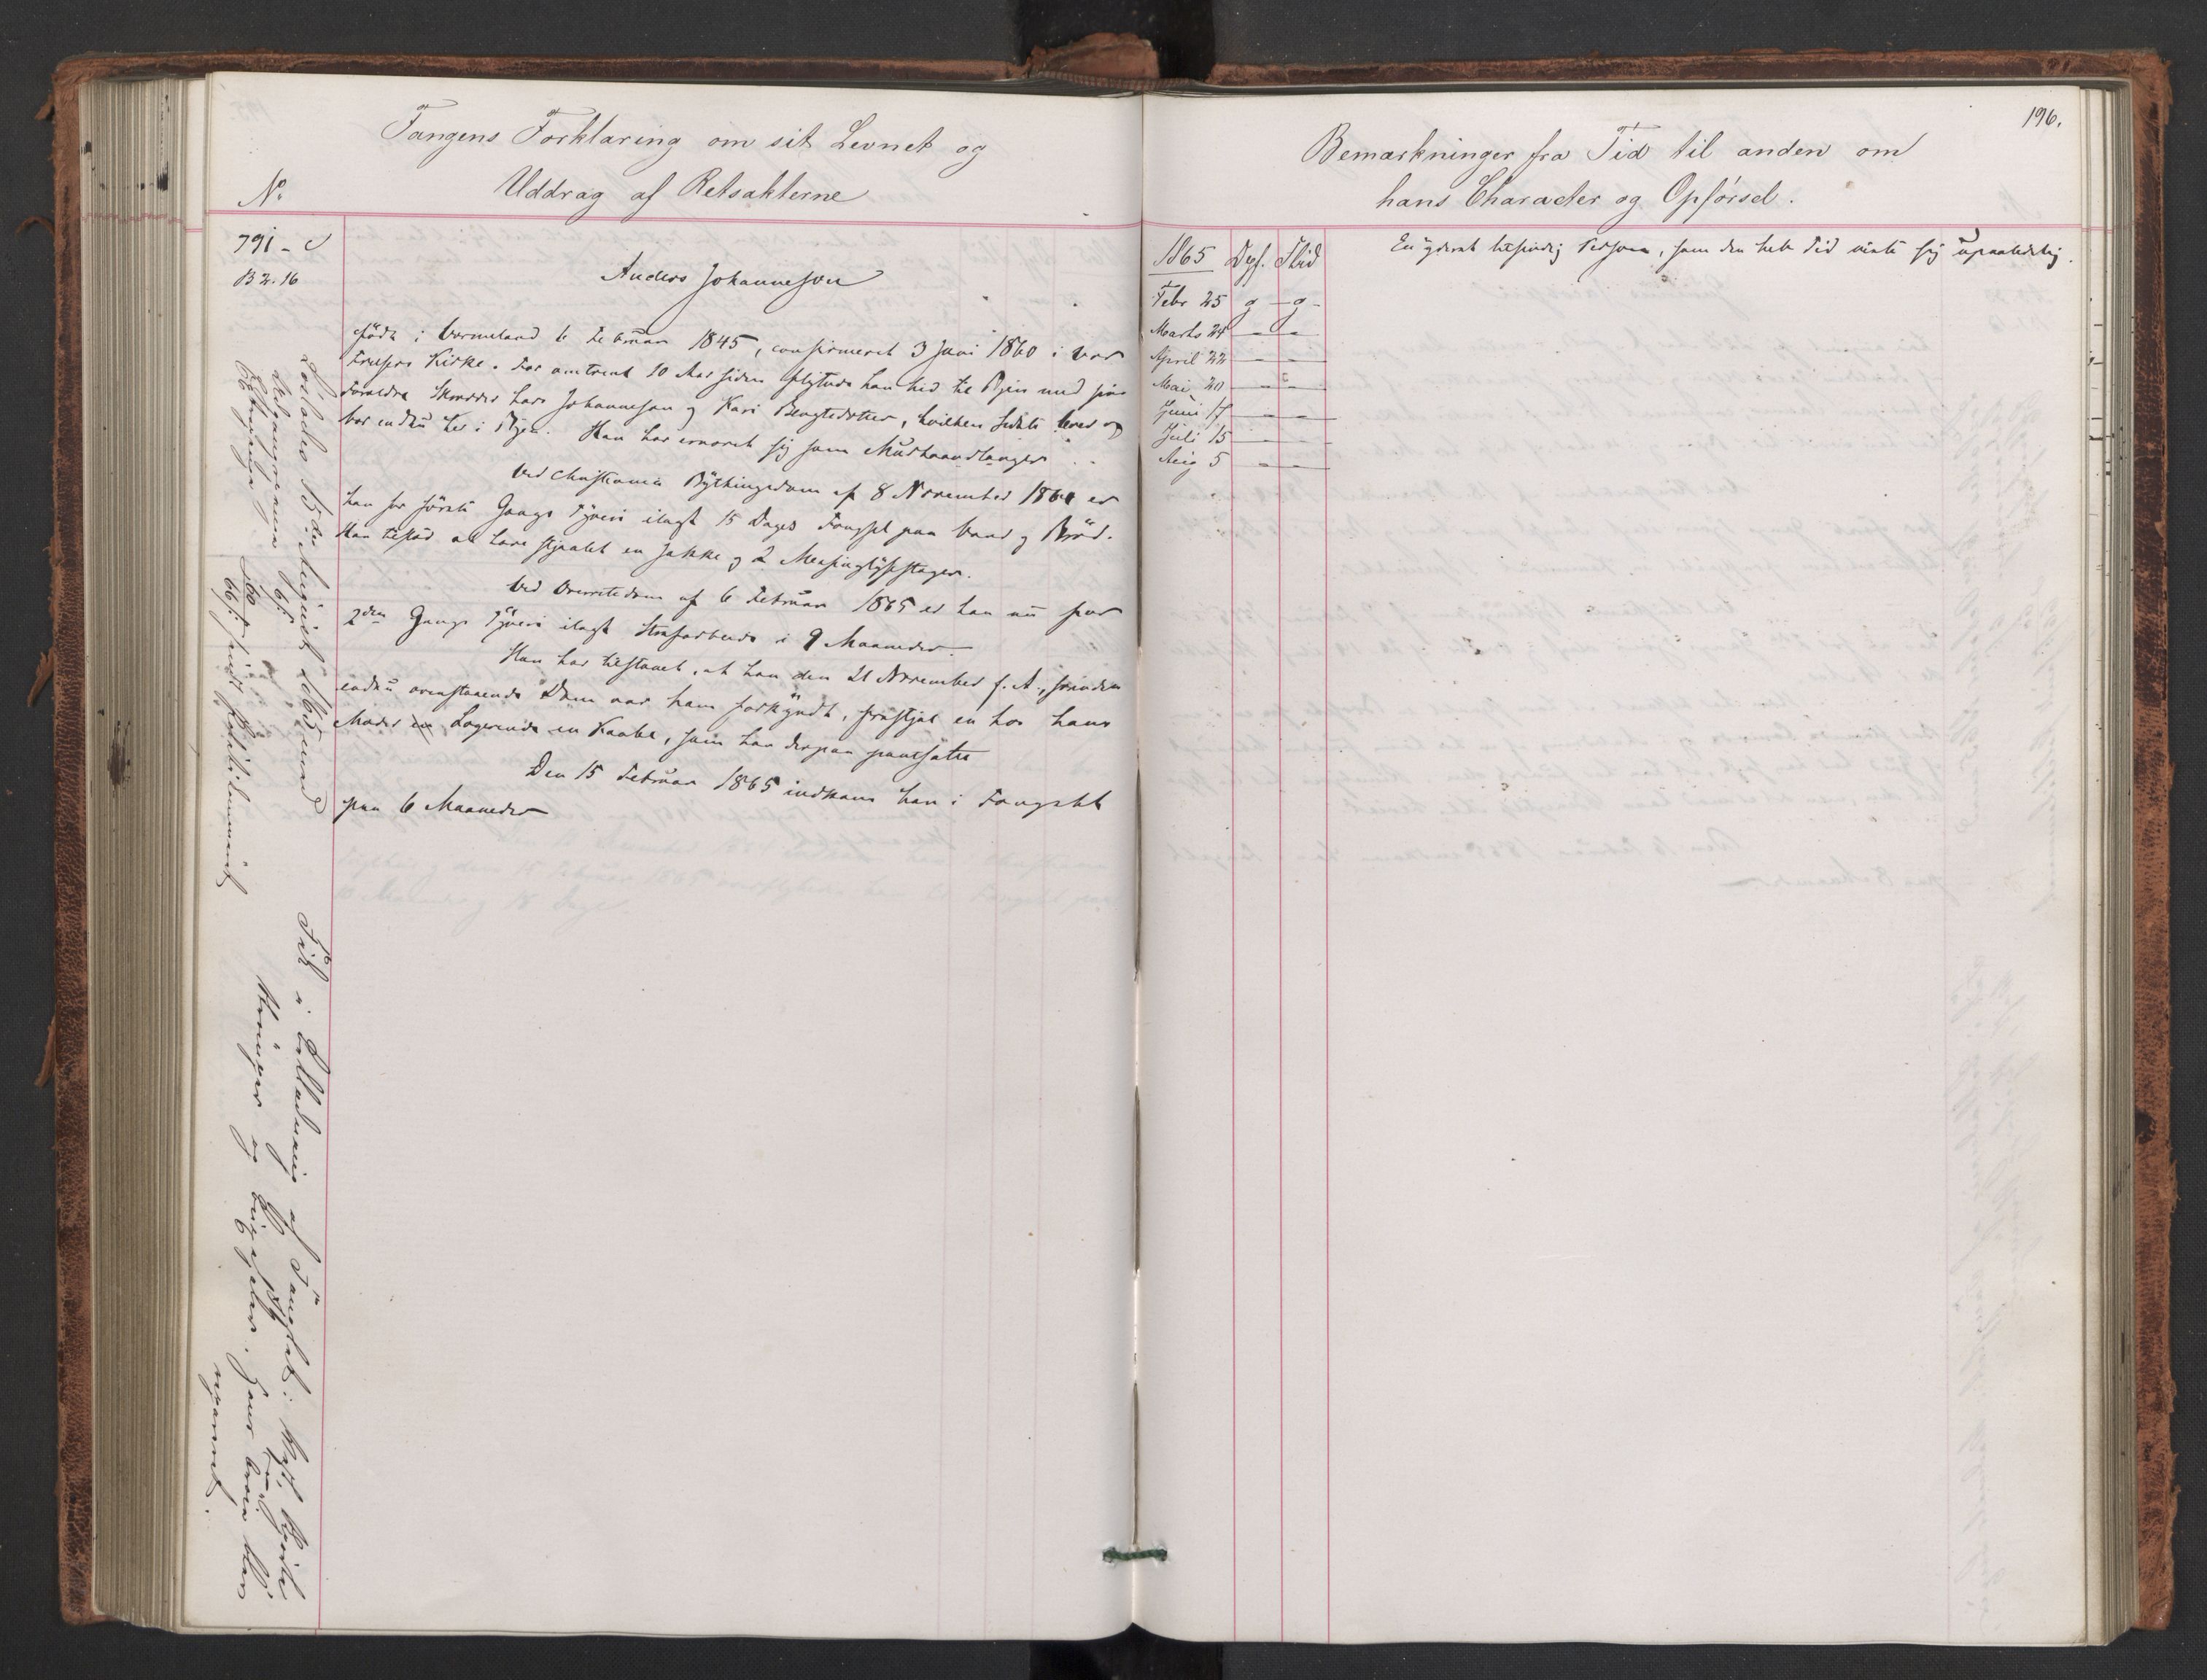 Fangens Forklaring om sit Levnet og
No
Uddrag af Retsakterne
791 - C
B 2. 16
Anders Johannesen
født i Vermeland 6 Februar 1845, confirmeret 3 Juni 1860 i Vor
Frelsers Kirke. For omtrent 10 Aar siden flyttede han hid til Byen med sine
Forældre Skrædder Lars Johannesen og Kari Bengtsdatter, hvilken sidste lever og
bor endnu her i Byen. Han har ernæret sig som Murhaandlanger.
Ved Christiania Bythingsdom af 8 November 1864 er
han for første Gangs Tyveri ilagt 15 Dages Fængsel paa Vand og Brød.
Han tilstod at have stjaalet en Jakke og 2 Messinglysestager.
Ved Overretsdom af 6 Februar 1865 er han nu for
2den Gangs Tyveri ilagt Strafarbeide i 9 Maaneder.
Han har tilstaaet, at han den 21 November f. A., forinden
endnu ovenstaaende Dom var ham forkyndt, frastjal en hos hans
Moder Logerende en Kaabe, som han derpaa pantsatte
Den 15 Februar 1865 indkom han i Fængslet
paa 6 Maaneder
Løslades 15de August 1865 med
Fik i af Fængslet:
og Hans
196.
Bemærkninger fra Tid til anden om
hans Character og Opførsel.
1865 Opf. Flid
Febr 25 g - g -
Marts 24 - -
April 22 - -
Mai 20 - -
Juni 17 - -
Juli 15 - -
Aug 5 - -
En yderst letsindig Person, som den hele Tid viste sig upaalidelig.